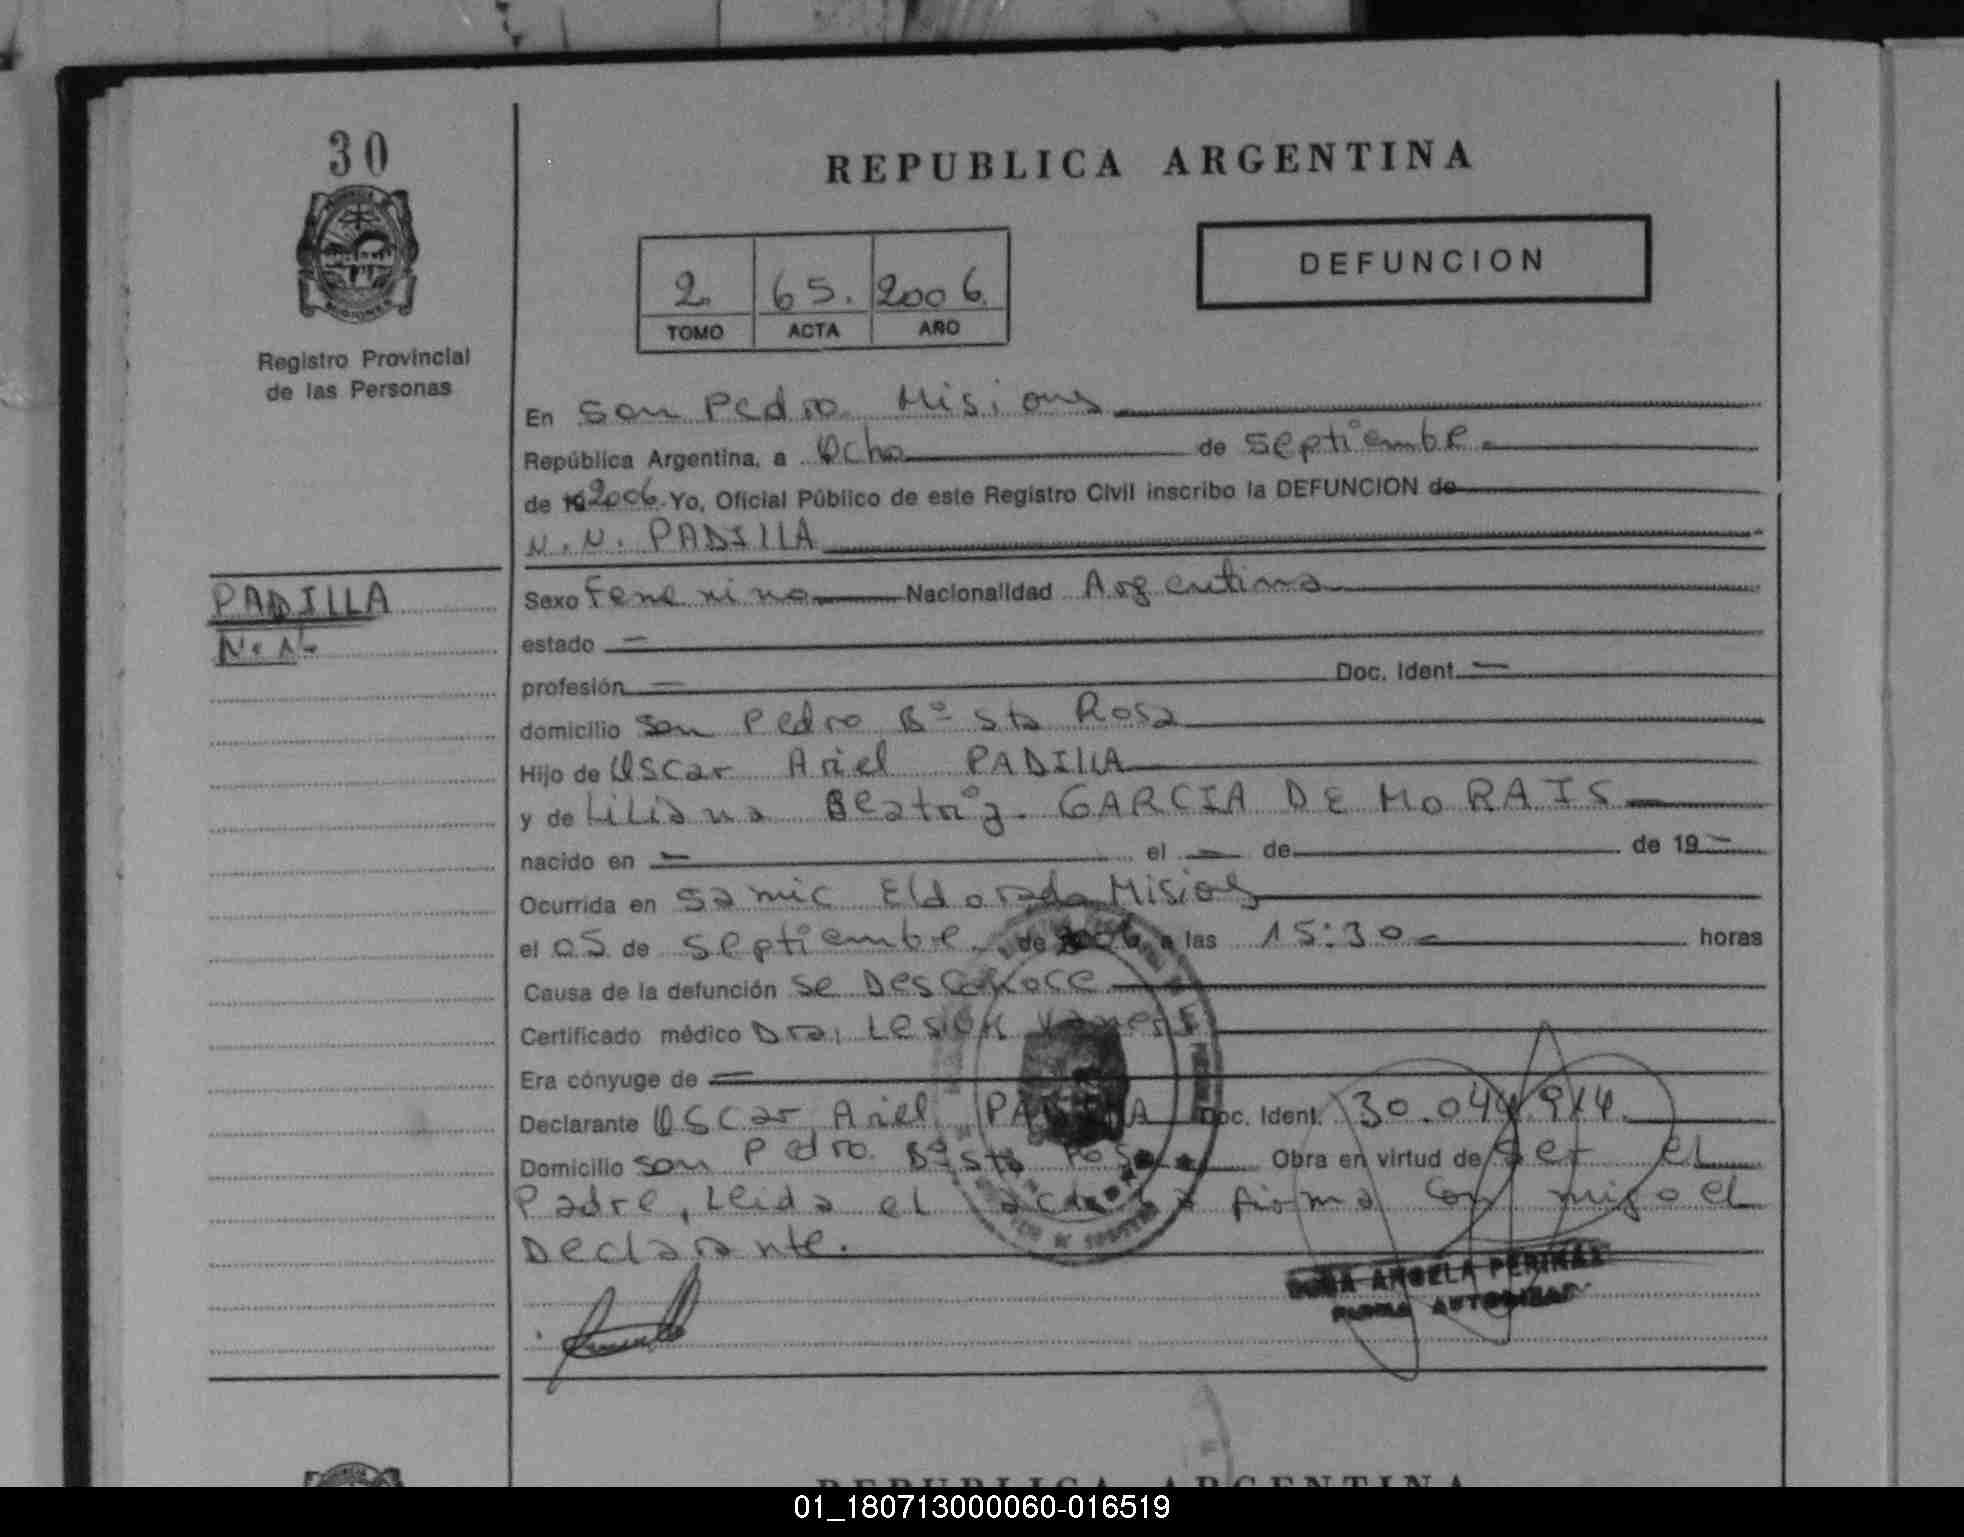 30
REPUBLICA ARGENTINA
DEFUNCION
2 65. 2006.
TOMO ACTA AÑO
Registro Provincial
de las Personas
En San Pedro Misiones
República Argentina, a Ocho de Septiembre
de 19 2006 Yo, Oficial Público de este Registro Civil inscribo la DEFUNCION de
N.N. PADILLA
PADILLA
N.N.
Sexo Femenino Nacionalidad Argentina
estado —
profesión — Doc. Ident. —
domicilio San Pedro Bº Sta Rosa
Hijo de Oscar Ariel PADILLA
y de Liliana Beatriz GARCIA DE MORAIS —
nacido en — el — de de 19 —
Ocurrida en Samic Eldorado Misiones
el 05 de Septiembre de 2006 a las 15:30 horas
Causa de la defunción Se Desconoce
Certificado médico Dra,
Era cónyuge de —
Declarante Oscar Ariel PADILLA Doc. Ident. 30.044.914
Domicilio San Pedro Bº Sta Rosa Obra en virtud de Ser el
Padre, Leida el acta la firma con migo el
Declarante.
ANGELA
REPUBLICA ARGENTINA
01_180713000060-016519